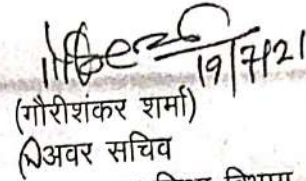 19/7/21
(गौरीशंकर शर्मा)
अवर सचिव
विभाग